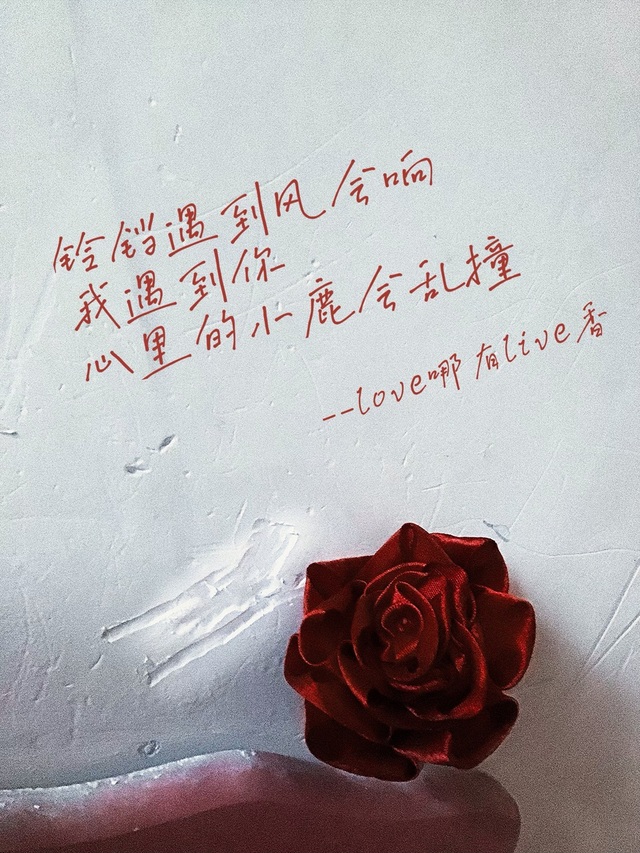 铃铛遇到风会响
我遇到你
心里的小鹿会乱撞
--love哪有live香